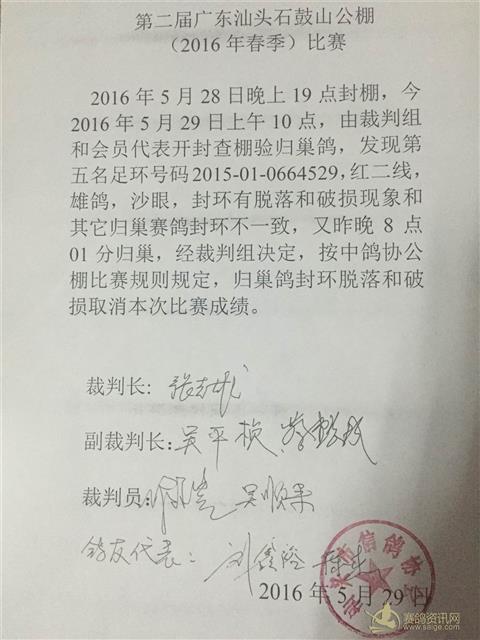 第二届广东汕头石鼓山公棚
（2016年春季）比赛
2016年5月28日晚上19点封棚，今
2016年5月29日上午10点，由裁判组
和会员代表开封查棚验归巢鸽，发现第
五名足环号码2015-01-0664529，红二线，
雄鸽，沙眼，封环有脱落和破损现象和
其它归巢赛鸽封环不一致，又昨晚8点
01分归巢，经裁判组决定，按中鸽协公
棚比赛规则规定，归巢鸽封环脱落和破
损取消本次比赛成绩。
裁判长：
副裁判长：吴平桢
裁判员：吴顺果
鸽友代表：刘鑫
汕头市信鸽协会
2016年5月29日
赛鸽资讯网
www.saige.com